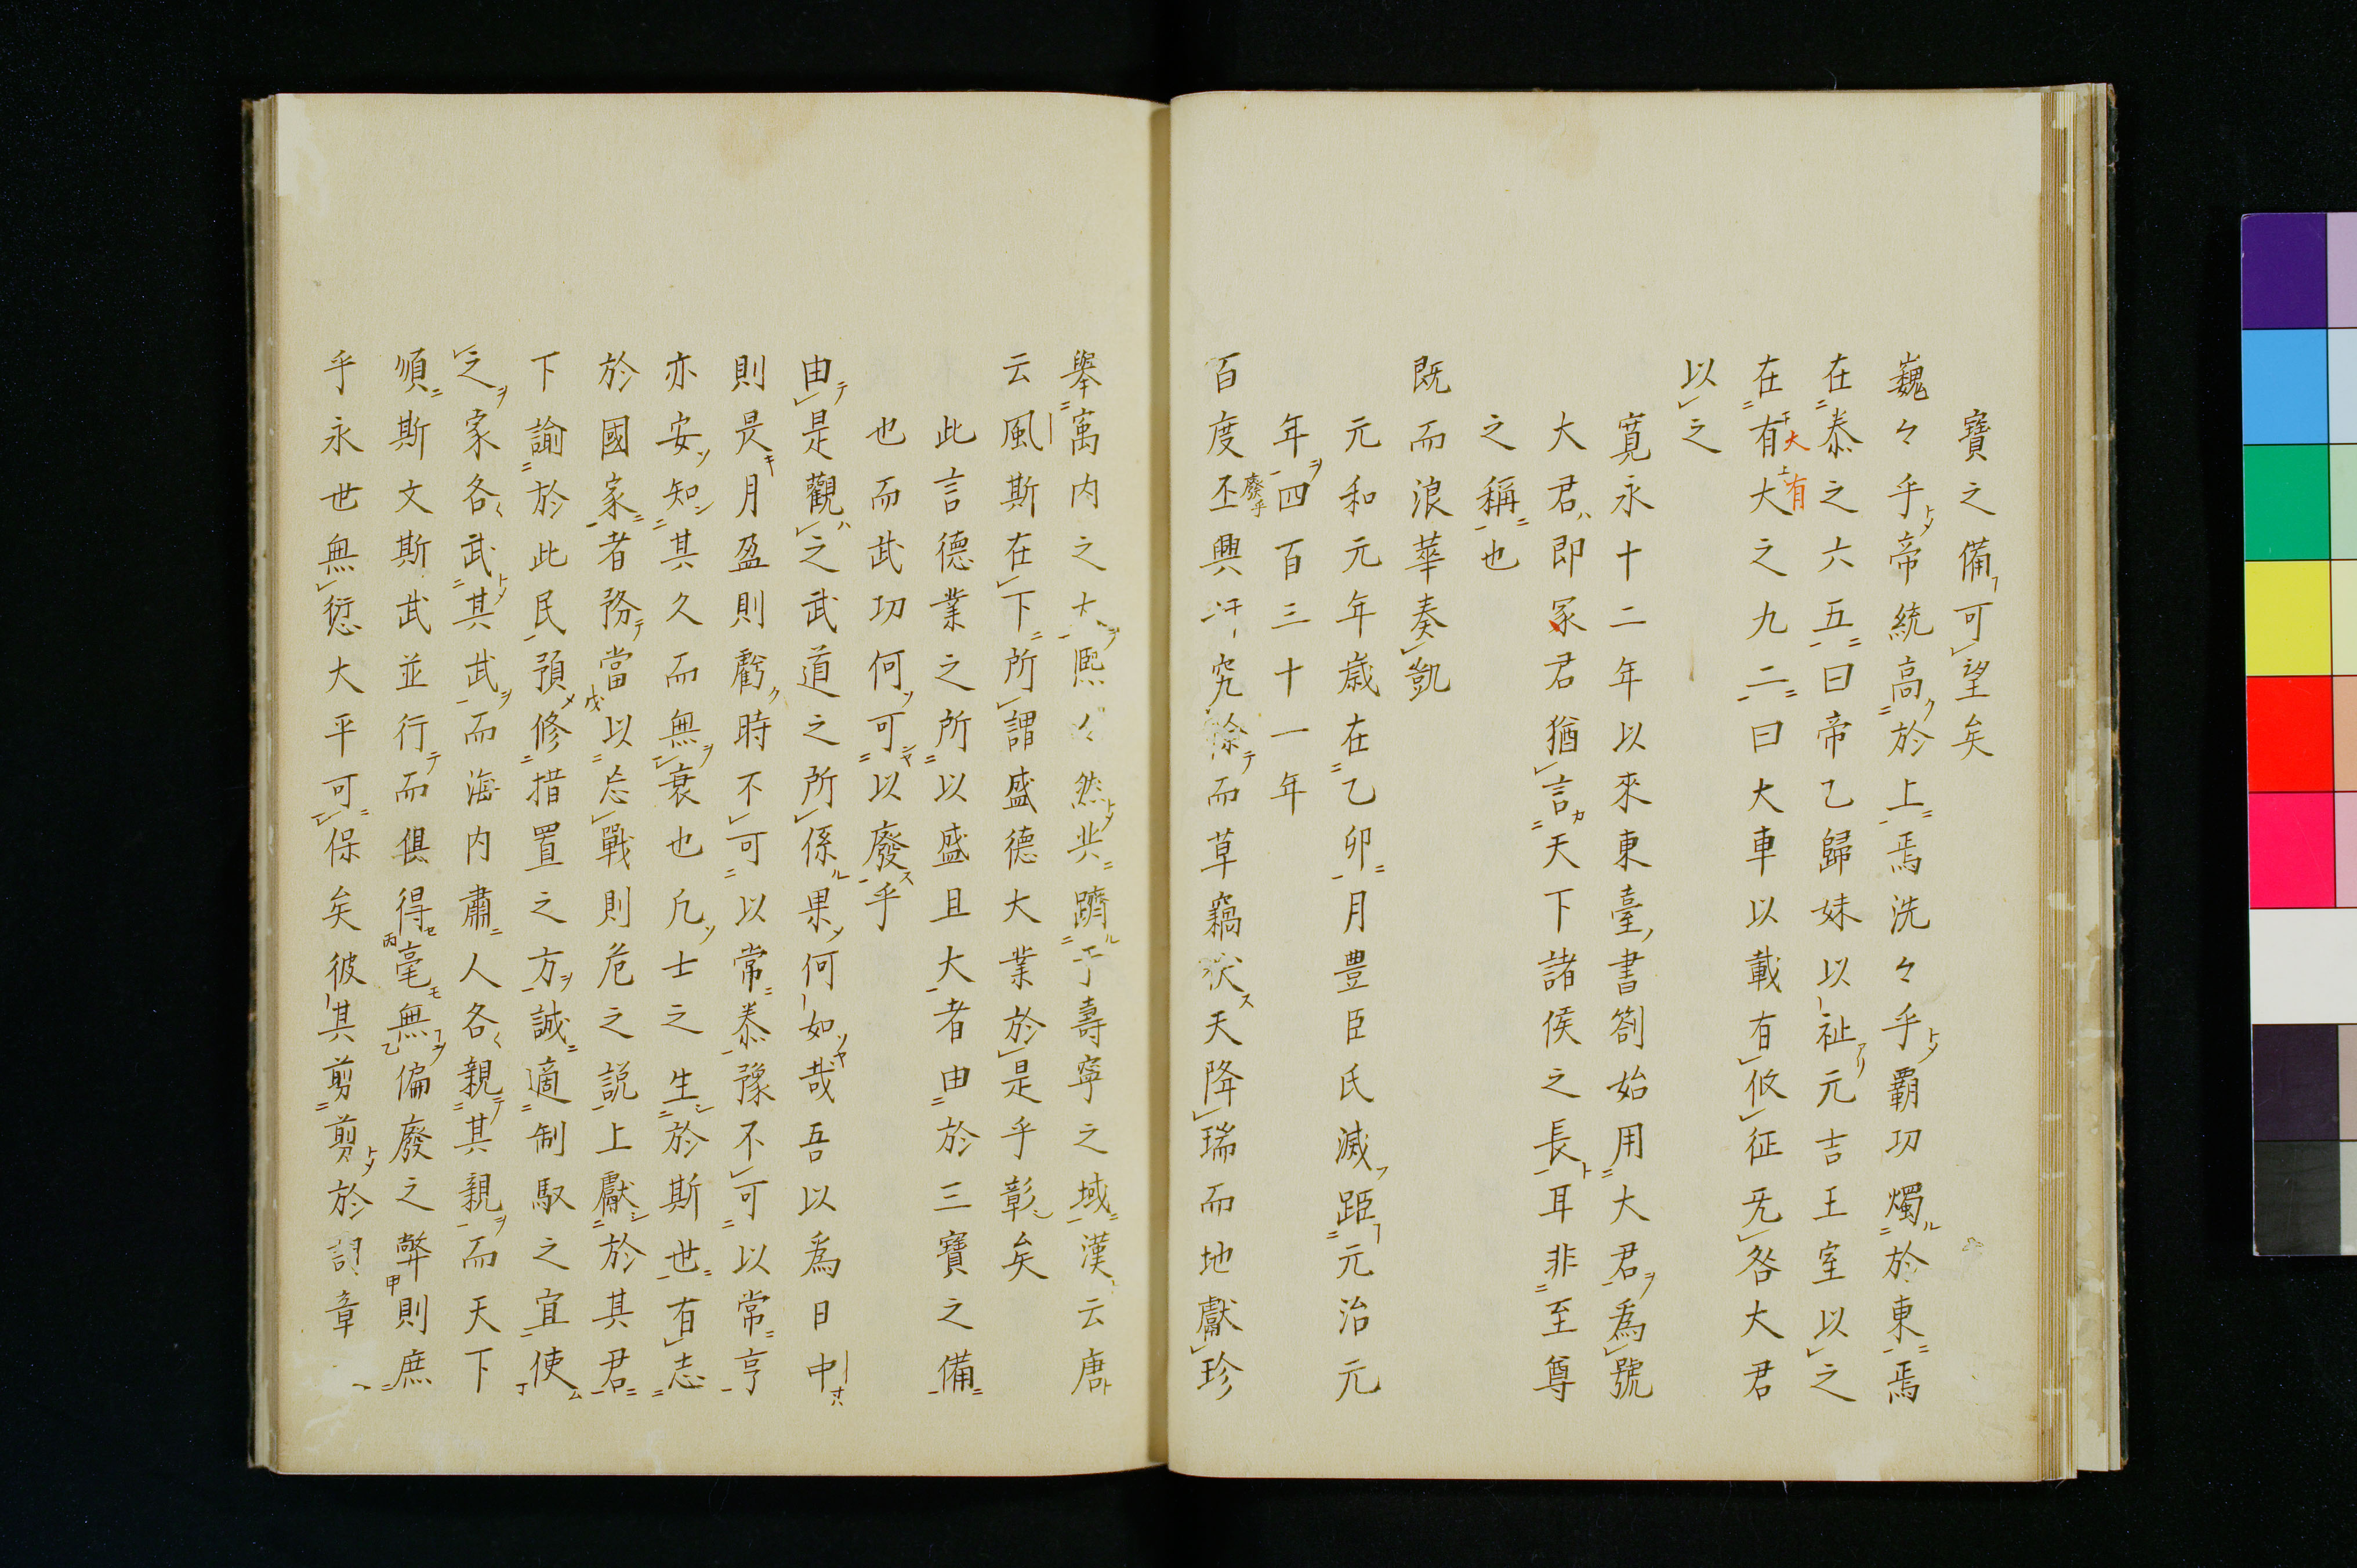 寶之備可望矣
巍々乎帝統高於上焉洗々乎覇功燭於東焉
在泰之六五曰帝乙歸妹以祉元吉王室以之
在有大之九二曰大車以載有攸征无咎大君
以之
寛永十二年以來東臺書劄始用大君爲號
大君即冢君猶言天下諸侯之長耳非至尊
之稱也
既而浪華奏凱
元和元年歳在乙卯月豊臣氏滅距元治元
年四百三十一年
百度丕興汙究除而草竊状天降瑞而地獻珍
舉寓内之大熙々然共躋于壽寧之域漢云唐
云風斯在下所謂盛德大業於是乎彰矣
此言德業之所以盛且大者由於三寶之備
也而武功何可以廢乎
由是觀之武道之所係果何如哉吾以爲日中
則昃月盈則虧時不可以常泰豫不可以常亨
亦安知其久而無衰也凡士之生於斯世有志
於國家者務當以忘戰則危之説上獻於其君
下諭於此民預修措置之方誠適制馭之宜使
之家各武其武而海内肅人各親其親而天下
順斯文斯武並行而倶得毫無偏廢之弊則庶
乎永世無愆大平可保矣彼其剪剪於詞章